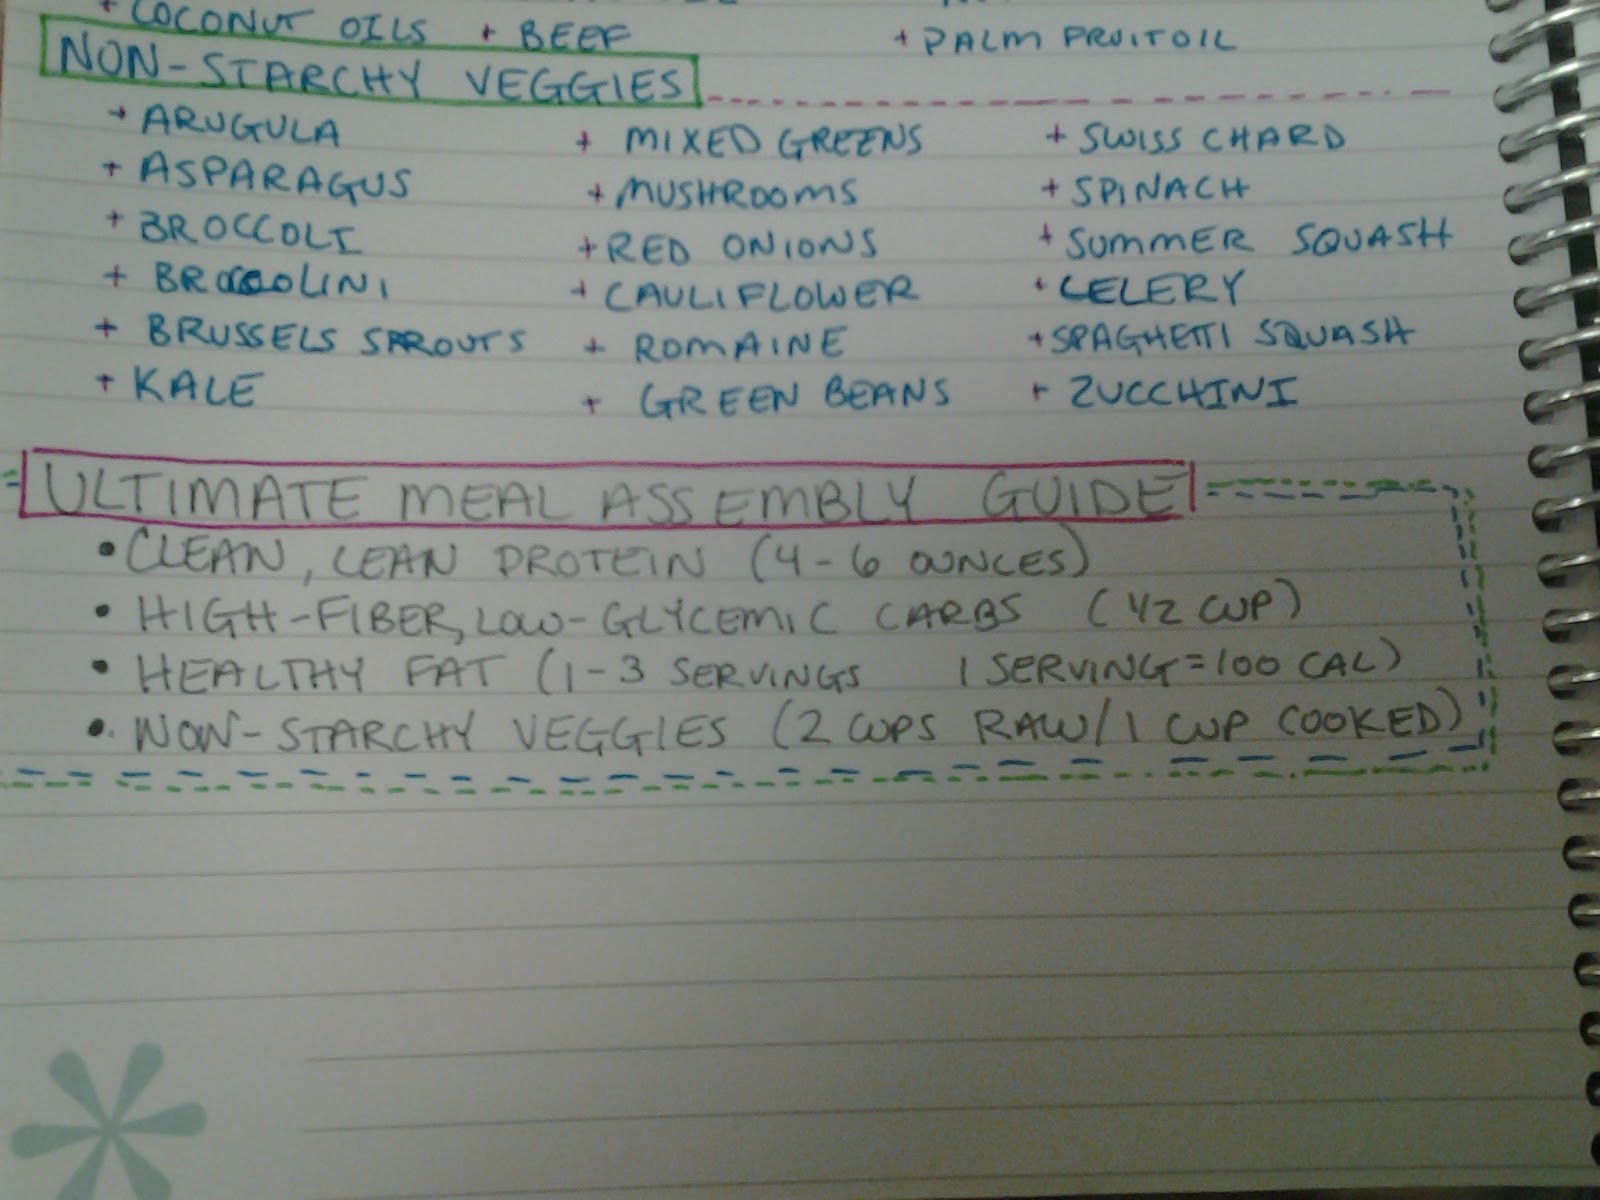 + COCONUT OILS + BEEF + PALM FRUIT OIL
NON-STARCHY VEGGIES
+ ARUGULA + MIXED GREENS + SWISS CHARD
+ ASPARAGUS + MUSHROOMS + SPINACH
+ BROCCOLI + RED ONIONS + SUMMER SQUASH
+ BROCCOLINI + CAULIFLOWER + CELERY
+ BRUSSELS SPROUTS + ROMAINE + SPAGHETTI SQUASH
+ KALE + GREEN BEANS + ZUCCHINI
ULTIMATE MEAL ASSEMBLY GUIDE
• CLEAN, LEAN PROTEIN (4-6 OUNCES)
• HIGH-FIBER, LOW-GLYCEMIC CARBS (1/2 CUP)
• HEALTHY FAT (1-3 SERVINGS 1 SERVING=100 CAL)
• NON-STARCHY VEGGIES (2 CUPS RAW/1 CUP COOKED)